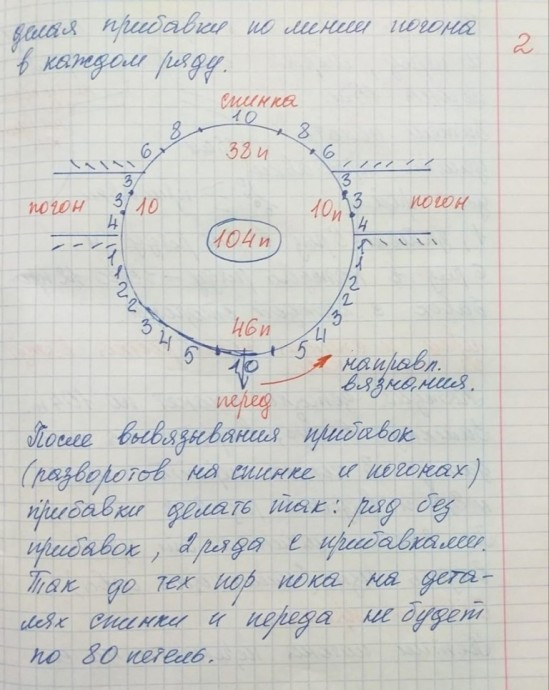 делая прибавки по линии погона
в каждом ряду.
2
спинка
10
8 8
6 6
38п
3 3
погон 3 10 10п 3 погон
4 4
104п
1 1
1 1
2 2
2 2
3 3
46п
4 4
5 5
10
направл.
вязания.
перед
После вывязывания прибавок
(разворотов на спинке и погонах)
прибавки делать так: ряд без
прибавок, 2 ряда с прибавками.
Так до тех пор пока на дета-
лях спинки и переда не будет
по 80 петель.